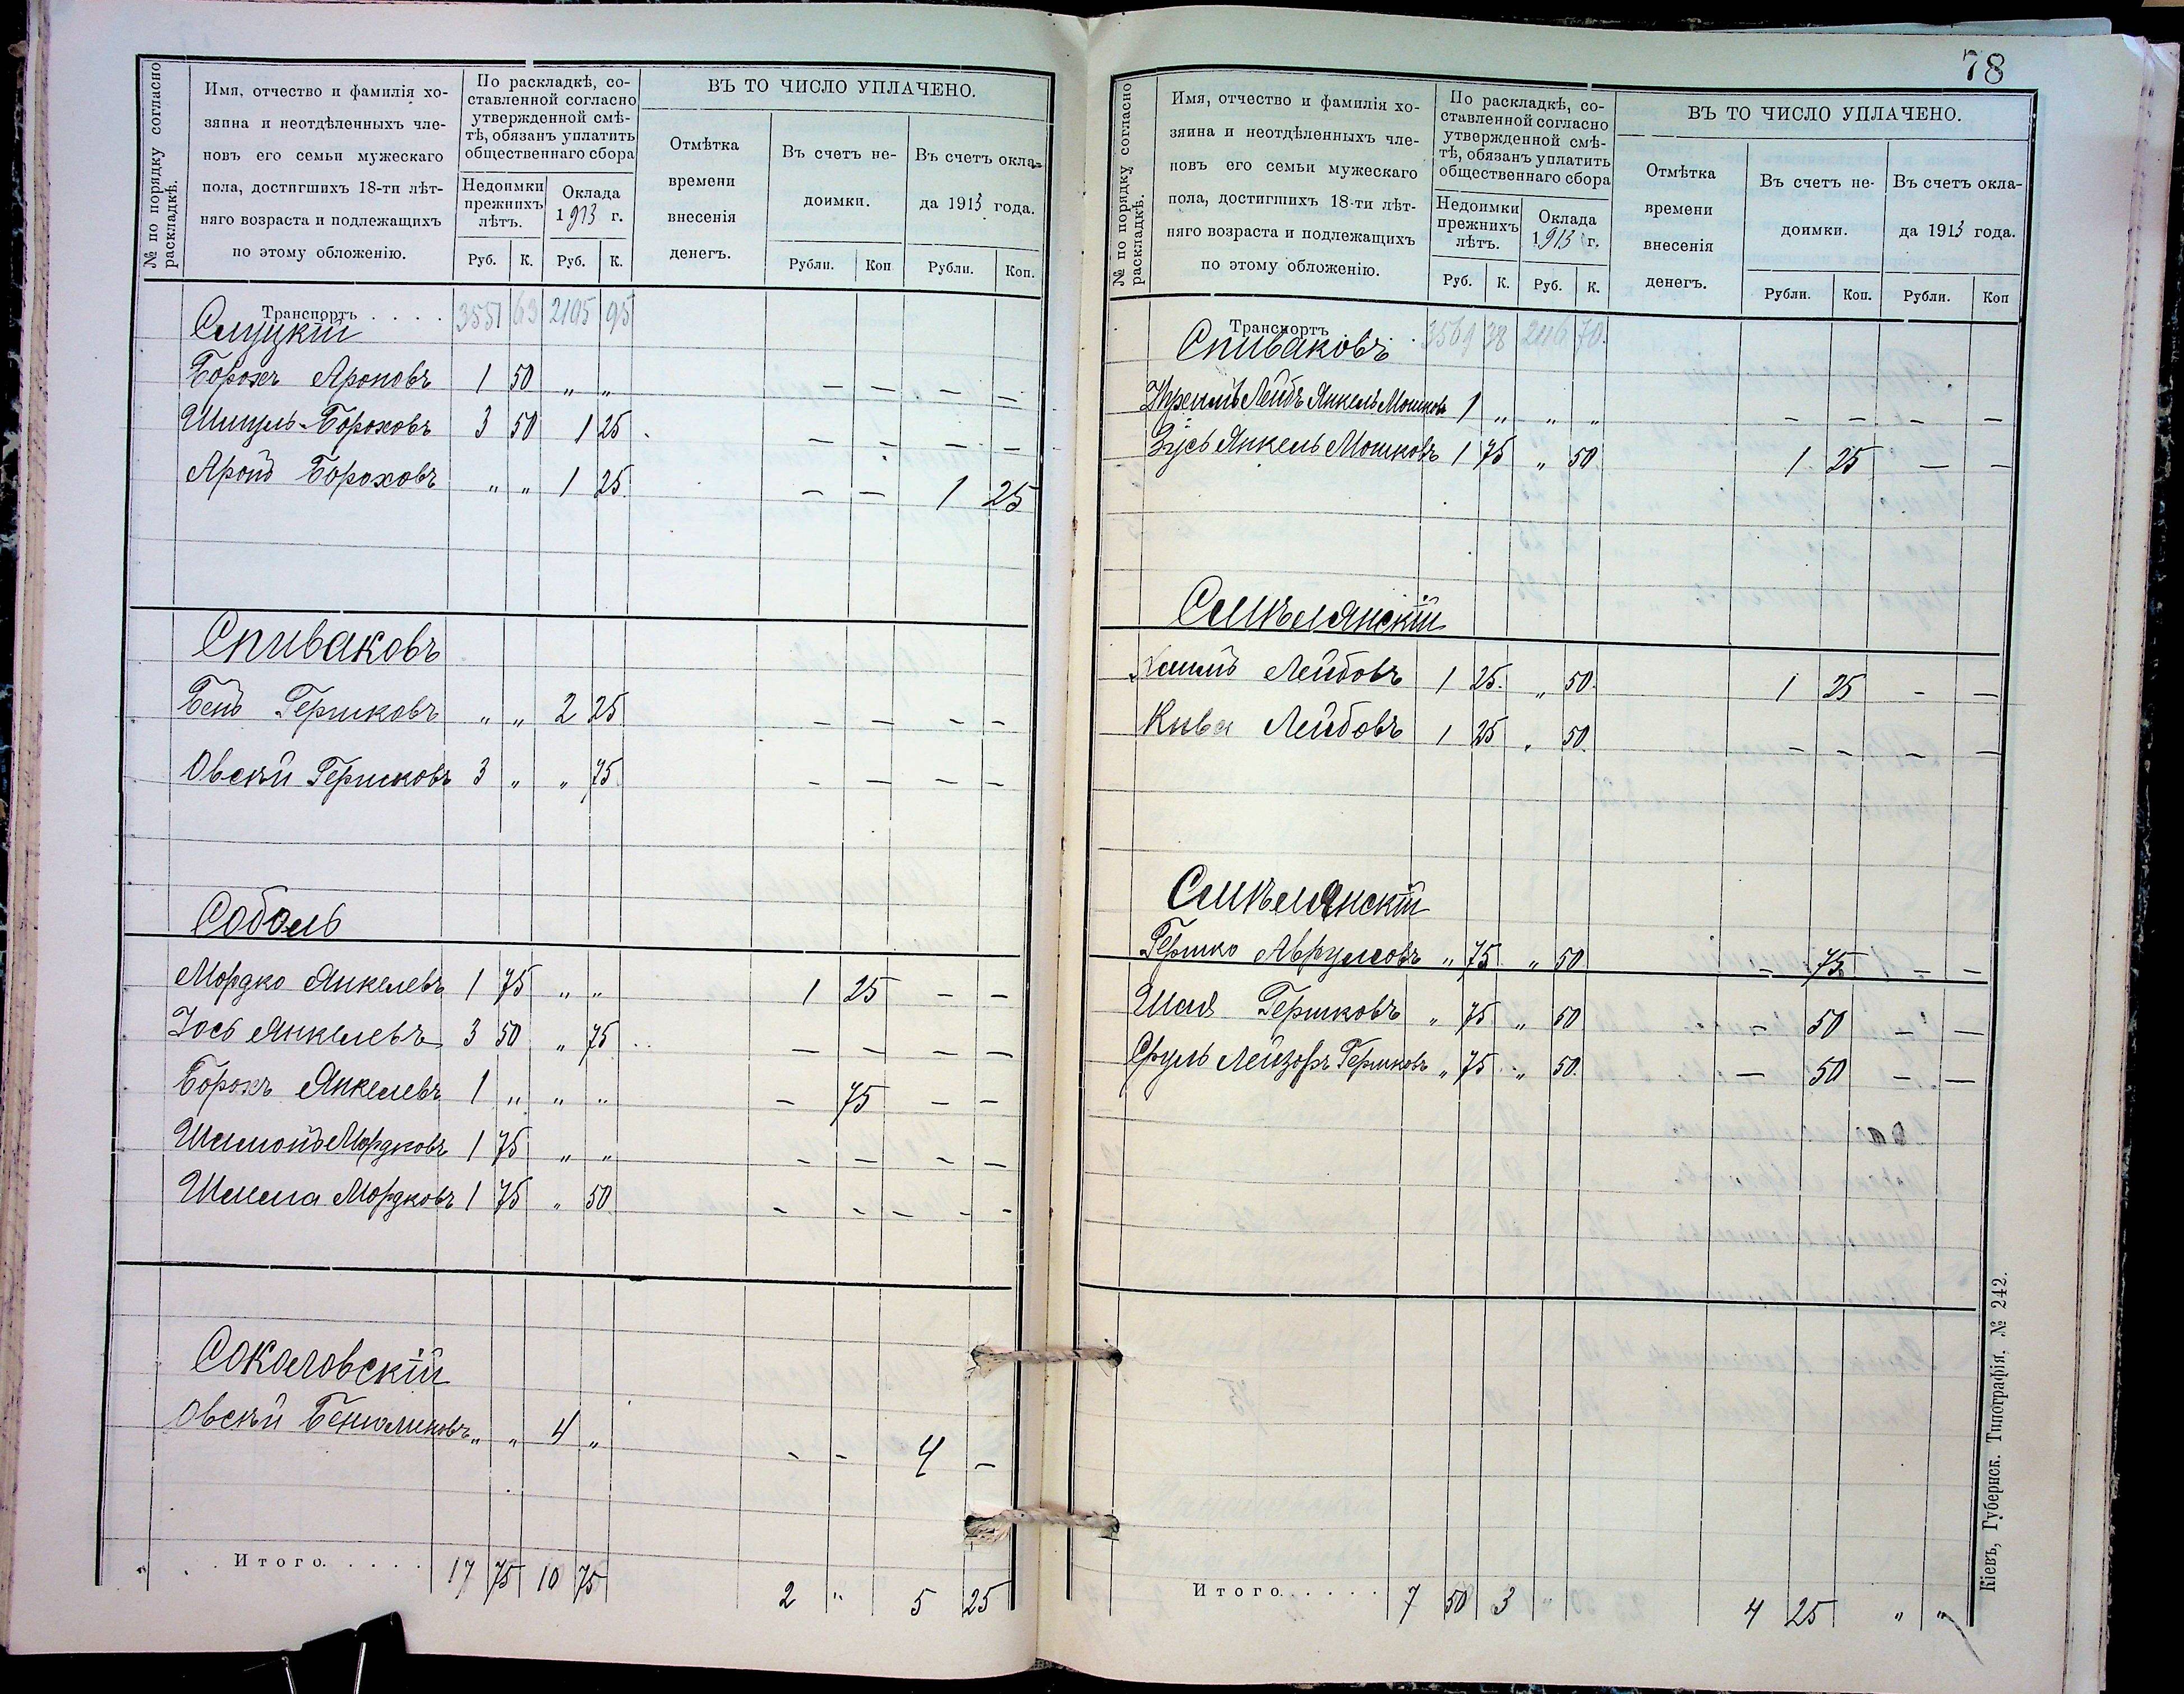 № по порядку согласно раскладкѣ.
Имя, отчество и фамилія хо-
зяина и неотдѣленныхъ чле-
новъ его семьи мужескаго
пола, достигшихъ 18-ти лѣт-
няго возраста и подлежащихъ
по этому обложенію.
По раскладкѣ, со-
ставленной согласно
утвержденной смѣ-
тѣ, обязанъ уплатить
общественнаго сбора
Недоимки прежнихъ лѣтъ.
Оклада 1913 г.
Руб. К. Руб. К.
ВЪ ТО ЧИСЛО УПЛАЧЕНО.
Отмѣтка времени внесенія денегъ.
Въ счетъ не-
доимки.
Въ счетъ окла-
да 1913 года.
Рубли. Коп Рубли. Коп.
Транспортъ . . . . 3551 63 2105 95
Слуцкій
Борохъ Ароновъ 1 50 „ „ — — — —
Шмуль-Бороховъ 3 50 1 25 — — — —
Аронъ Бороховъ „ „ 1 25 — — 1 25
Спиваковъ
Бенъ Гершковъ „ „ 2 25 — — — —
Овсѣй Гершковъ 3 „ „ 75 — — — —
Соболь
Мордко Янкелевъ 1 75 „ „ 1 25 — —
Іось Янкелевъ 3 50 „ 75 — — — —
Борохъ Янкелевъ 1 „ „ „ — 75 — —
Шимонъ Мордковъ 1 75 „ „ — — — —
Шлема Мордковъ 1 75 „ 50 — — — — —
Сокаловскій
Овсѣй „ „ 4 „ — — 4 —
Итого. . . . . 17 75 10 75 2 „ 5 25
78
№ по порядку согласно раскладкѣ.
Имя, отчество и фамилія хо-
зяина и неотдѣленныхъ чле-
новъ его семьи мужескаго
пола, достигшихъ 18-ти лѣт-
няго возраста и подлежащихъ
по этому обложенію.
По раскладкѣ, со-
ставленной согласно
утвержденной смѣ-
тѣ, обязанъ уплатить
общественнаго сбора
Недоимки прежнихъ лѣтъ.
Оклада 1913 г.
Руб. К. Руб. К.
ВЪ ТО ЧИСЛО УПЛАЧЕНО.
Отмѣтка времени внесенія денегъ.
Въ счетъ не-
доимки.
Въ счетъ окла-
да 1913 года.
Рубли. Коп. Рубли. Коп
Транспортъ . 3569 38 2116 70
Спиваковъ
Лейбъ Янкель Мошковъ 1 „ „ „ — — — —
Зусь Янкель Мошковъ 1 75 „ 50 1 25 — —
Смѣлянскій
Хаимъ Лейбовъ 1 25 „ 50 1 25 — —
Кива Лейбовъ 1 25 „ 50 — — — —
Смѣлянскій
Гершко Аврумовъ „ 75 „ 50 — 75 — —
Шая Гершковъ „ 75 „ 50 — 50 — —
Сруль Лейзоръ Гершковъ „ 75 „ 50 — 50 — —
Итого. . . . . 7 50 3 „ 4 25 „ „
Кіевъ, Губернск. Типографія. № 242.